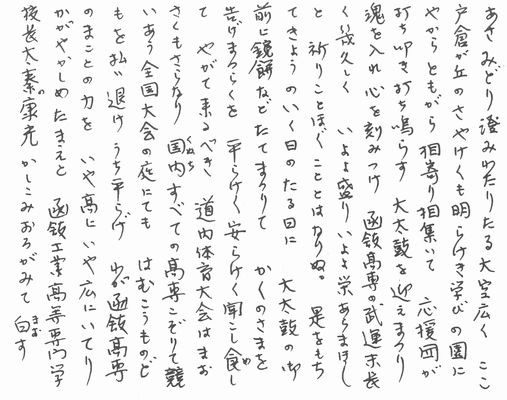 あさみどり澄みわたりたる大空広く ここ
戸倉が丘のさやけくも明らけき学びの園に
やからともがら相寄り相集いて 応援団が
打ち叩き打ち鳴らす 大太鼓を迎えまつり
魂を入れ心を刻みつけ 函館高専の武運末長
く幾久しく いよよ盛り いよよ栄あらまほし
と 祈りことほぐこととはなりぬ。 是をもち
てきょうのいく日のたる日に 大太鼓の御
前に鏡餅などたてまつりて かくのさまを
告げまつらくを 平らけく安らけく聞こし食し
て やがて来るべき 道内体育大会はまお
さくもさらなり 国内すべての高専こぞりて競
いあう全国大会の庭にても はむこうものど
もを払い退け うち平らげ わが函館高専
のまことの力を いや高にいや広にいてり
かがやかしめたまえと 函館工業高等専門学
校長大素康充 かしこみおろがみて 白す